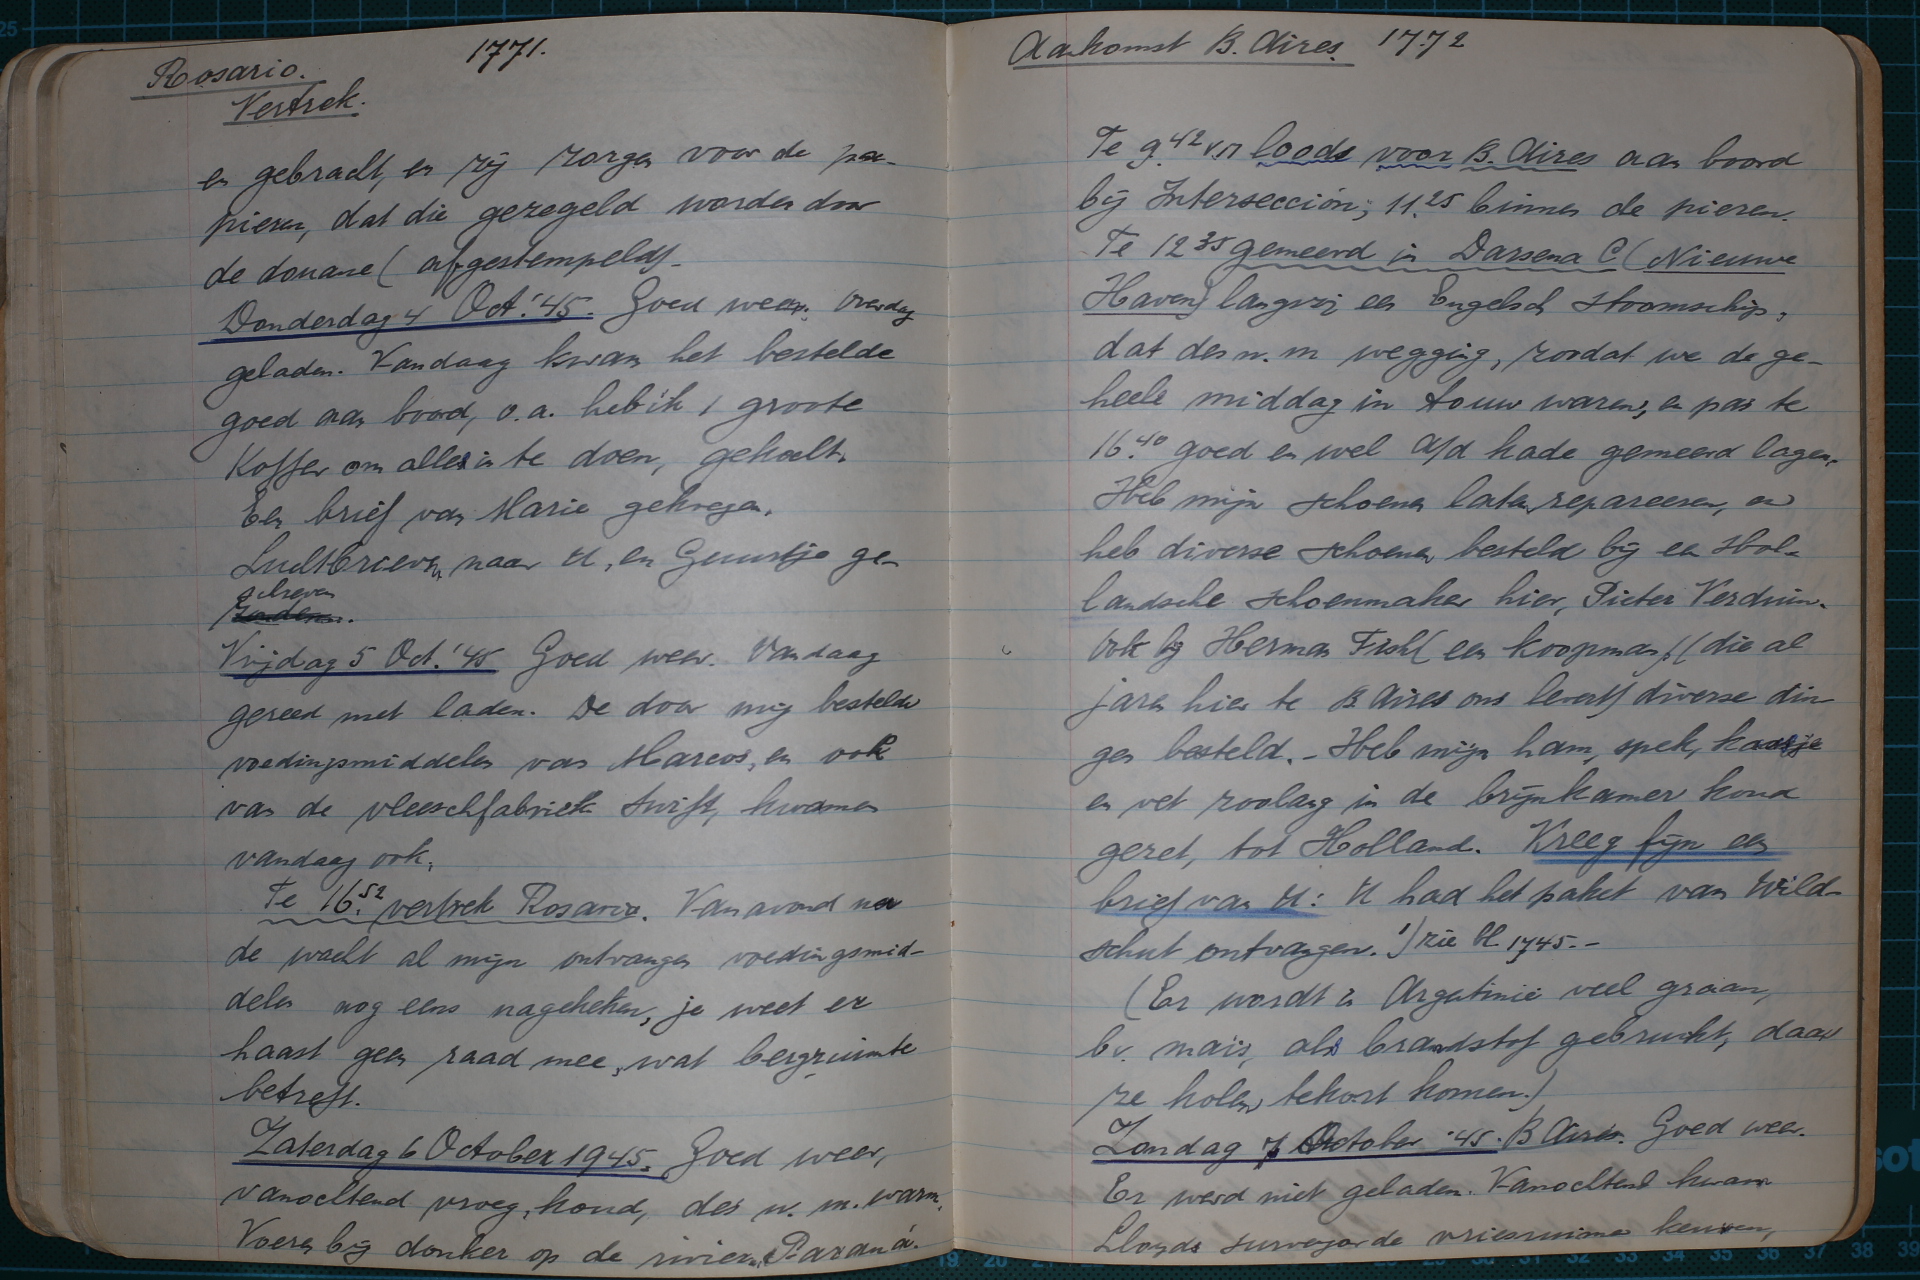 1771.
Rosario.
Vertrek.
en gebracht, en zij zorgen voor de pa-
pieren, dat die gezegeld worden door
de douane (afgestempeld).
Donderdag 4 Oct. '45. Goed weer. Overdag
geladen. Vandaag kwam het bestelde
goed aan boord, o.a. heb ik 1 groote
Koffer om alles in te doen, gekocht.
Een brief van Marie gekregen.
Luchtbrieven naar U, en Guurtje ge-
schreven
zonden.
Vrijdag 5 Oct. '45 Goed weer. Vandaag
gereed met laden. De door mij bestelde
voedingsmiddelen van Marcos, en ook
van de vleeschfabriek Swift, kwamen
vandaag ook.
Te 16.52 vertrek Rosario. Vanavond na
de wacht al mijn ontvangen voedingsmid-
delen nog eens nagekeken, je weet er
haast geen raad mee, wat bergruimte
betreft.
Zaterdag 6 October 1945. Goed weer,
vanochtend vroeg, koud, des n.m. warm.
Voeren bij donker op de rivier, Paraná.
Aankomst B. Aires. 1772
Te 9.42 v.m loods voor B. Aires aan boord
bij Intersección; 11.25 binnen de pieren.
Te 12 35 gemeerd in Darsena C (Nieuwe
Haven) langszij een Engelsch stoomschip,
dat des n.m wegging, zoodat we de ge-
heele middag in touw waren, en pas te
16.40 goed en wel a/d kade gemeerd lagen.
Heb mijn schoenen laten repareeren, en
heb diverse schoenen besteld bij een Hol-
landsche schoenmaker hier, Pieter Verduin.
Ook bij Herman Fishl (een koopman), (die al
jaren hier te B. Aires ons levert) diverse din-
gen besteld. - Heb mijn ham, spek, kaasje
en vet zoolang in de brijnkamer koud
gezet, tot Holland. Kreeg fijn een
brief van U: U had het paket van Wild-
schut ontvangen. 1) zie bl. 1745. -
(Er wordt in Argentinië veel graan,
bv. maïs, als brandstof gebruikt, daar
ze kolen tekort komen.)
Zondag 7 October '45. B Aires. Goed weer.
Er werd niet geladen. Vanochtend kwam
Lloyds surveyor de vriesruimen keuren,